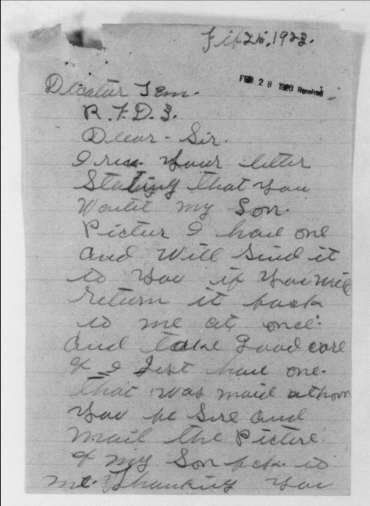 Feb 26, 1923.
FEB 28 1923 Received
Decatur Tenn.
R.F.D. 3.
Dear Sir.
I rec your letter
Stating that you
Wantet my Son.
Pictur I have one
and Will Send it
to you if you will
return it back
to me at once.
and take good care
of I Just have one.
that was maid at hom
You be Sire and
mail the Picture
of my Son back to
me. Thanking you